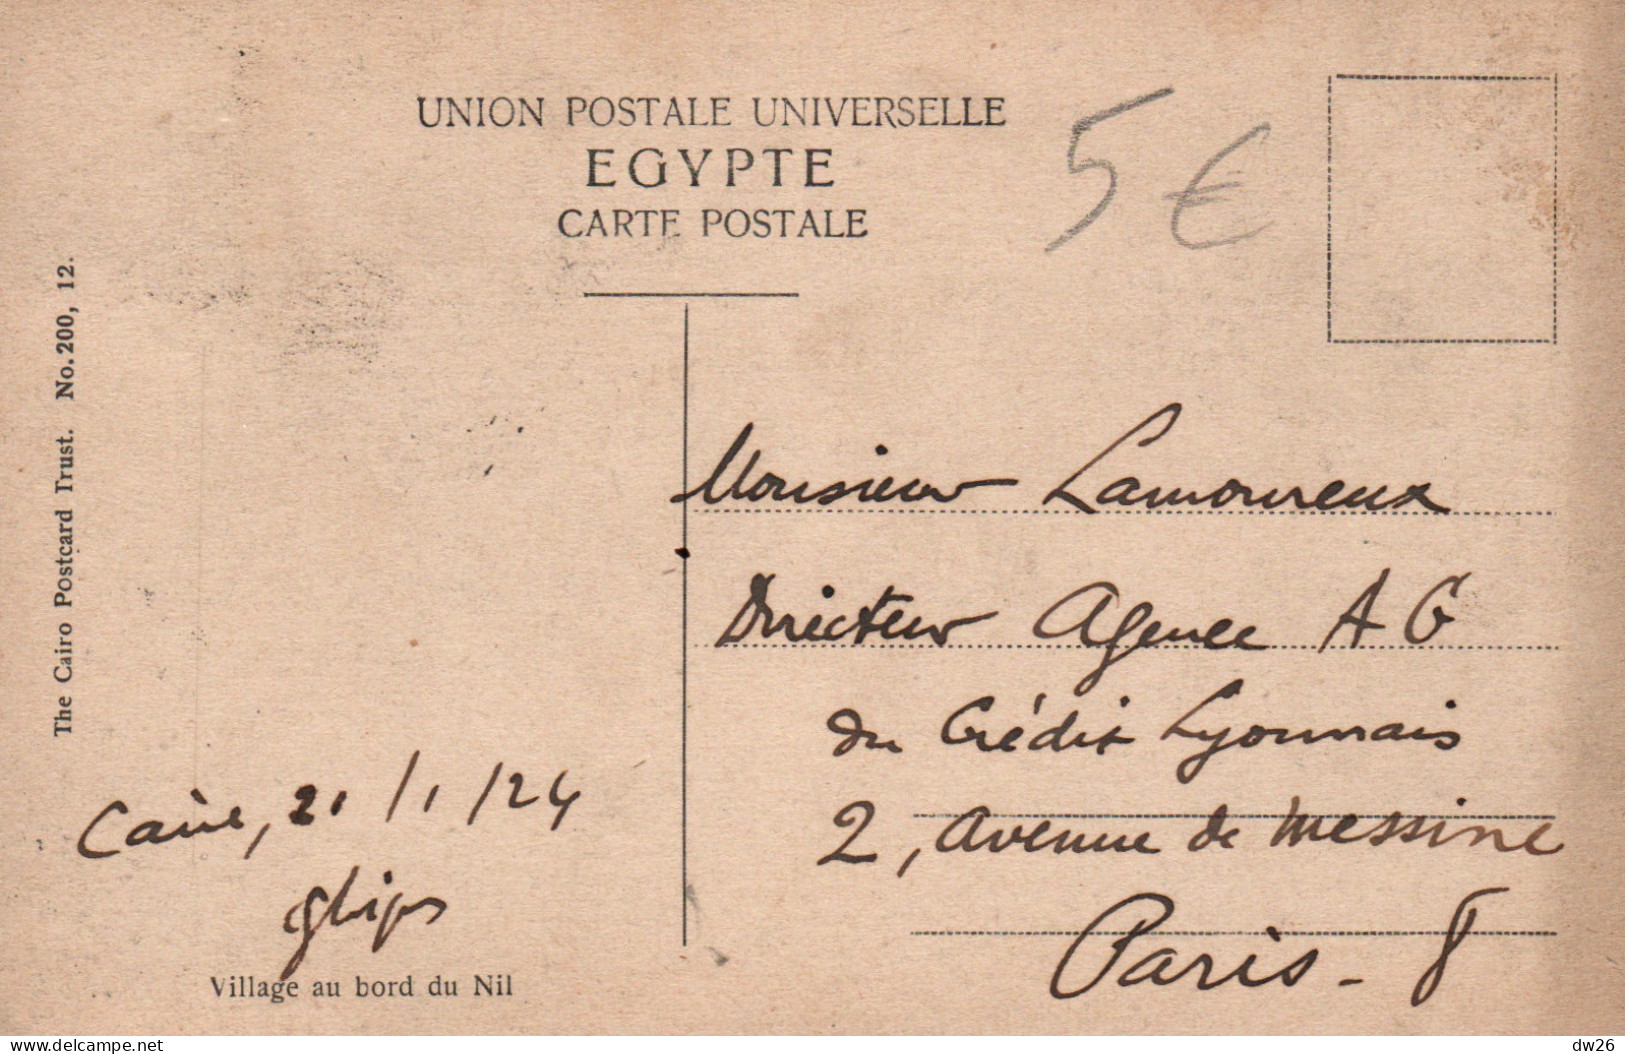 UNION POSTALE UNIVERSELLE
EGYPTE
CARTE POSTALE
5 €
The Cairo Postcard Trust. No. 200, 12.
Monsieur Lamoureux
Directeur Agence A G
du Crédit Lyonnais
2, avenue de Messine
Paris - 8
Caire, 21/1/24
Village au bord du Nil
delcampe.net
dw26